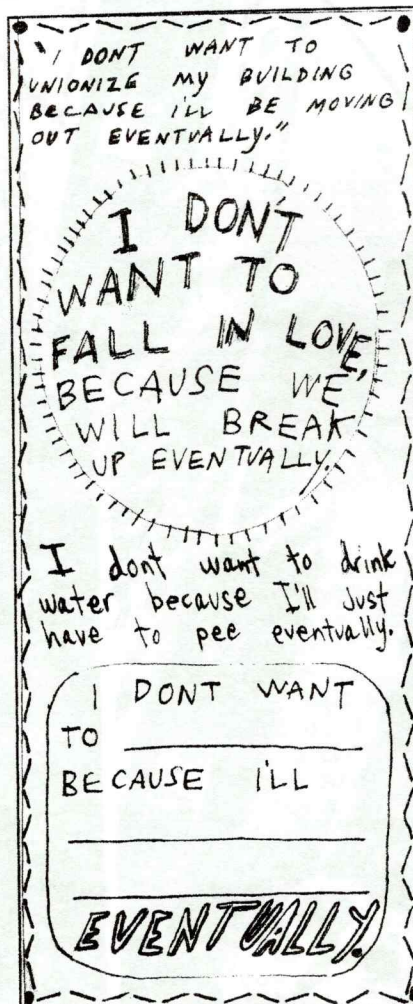 "I DONT WANT TO
UNIONIZE MY BUILDING
BECAUSE I'LL BE MOVING
OUT EVENTUALLY."
I DON'T
WANT TO
FALL IN LOVE,
BECAUSE WE
WILL BREAK
UP EVENTUALLY.
I dont want to drink
water because I'll Just
have to pee eventually.
I DONT WANT
TO
BECAUSE I'LL
EVENTUALLY.